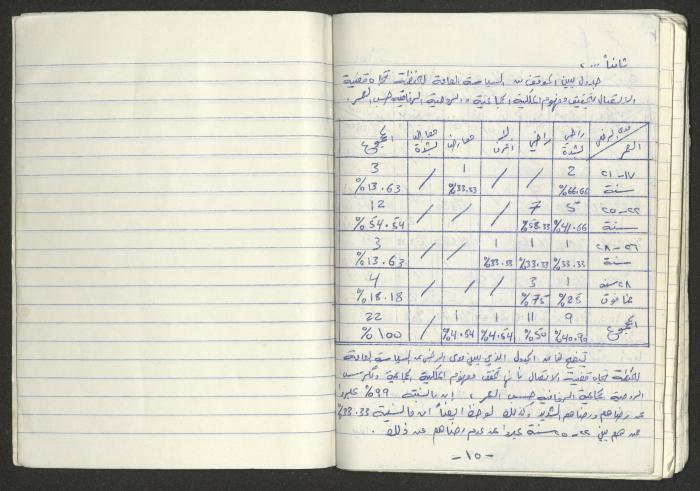 ثانياً ...
جدول يبين الموقف من السياسة العامة للخطة تجاه قضية
الانتقال لتحقيق مفهوم الملكية الجماعية والروحية الرفاقية حسب العمر.
مدى الرضى / العمر راضي بشدة راضي لا اعرف معارض معارض بشدة المجموع
١٧-٢١ سنة 2 %66.66 / / 1 %33.33 / 3 %13.63
٢٢-٢٥ سنة 5 %41.66 7 %58.33 / / / 12 %54.54
٢٦-٢٨ سنة 1 %33.33 1 %33.33 1 %33.33 / / 3 %13.63
٢٨ سنة فما فوق 1 %25 3 %75 / / / 4 %18.18
المجموع 9 %40.90 11 %50 1 %4.54 1 %4.54 / 22 %100
يتضح لنا من الجدول الذي يبين مدى الرضى عن السياسة العامة
للخطة تجاه قضية الانتقال بأن تحقق مفهوم الملكية الجماعية وتكريس
الروحية الجماعية الرفاقية حسب العمر، إن ما نسبته 99% عبروا
عن رضاهم ورضاهم الشديد وكذلك لوحظ ايضاً ان ما نسبته 33.33%
من هم بين ٢٢-٢٥ سنة عبروا عن عدم رضاهم عن ذلك.
-١٥-